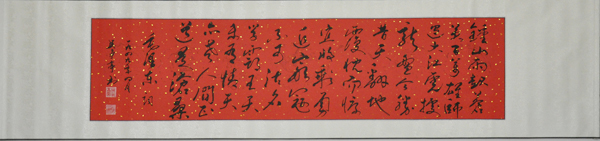 鍾山風雨起蒼
黃百萬雄師
過大江虎踞
龍盤今勝
昔天翻地
覆慨而慷
宜將剩勇
追窮寇
不可沽名
學霸王天
若有情天
亦老人間正
道是滄桑
毛澤東詞